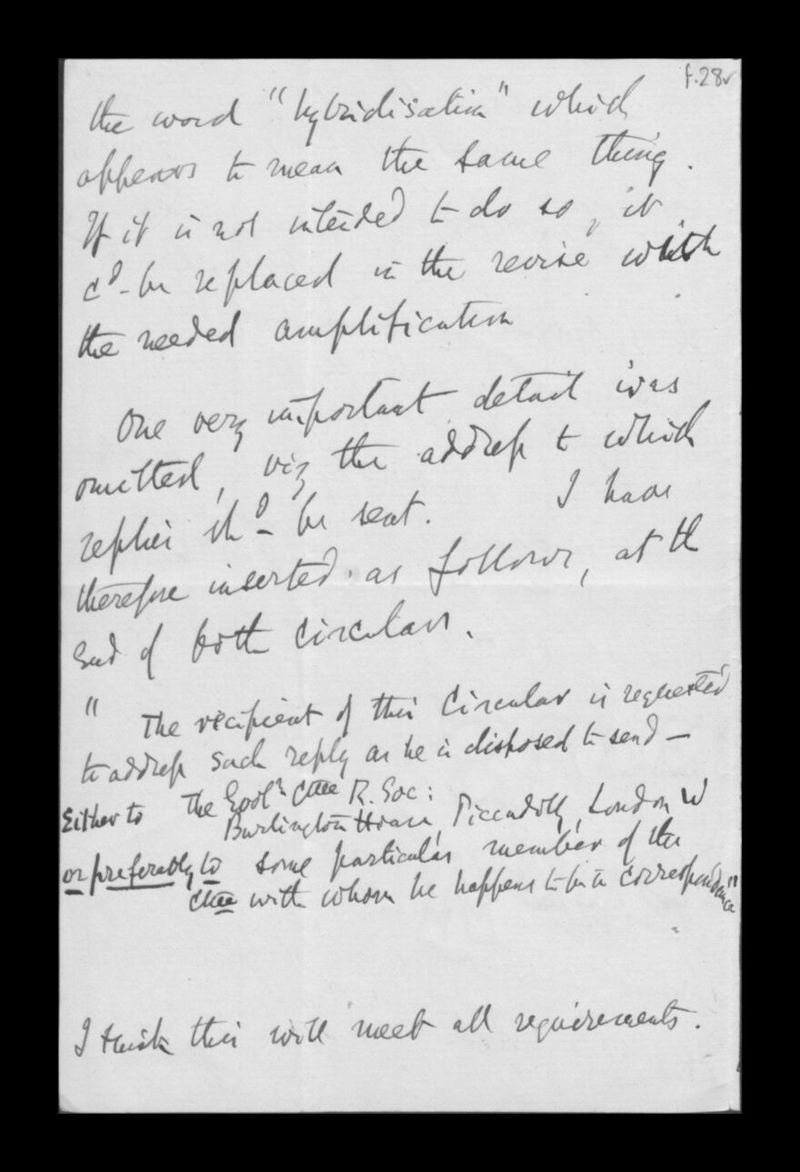 f.28v
the word "hybridisation" which
appears to mean the same thing.
If it is not intended to do so, it
cd- be replaced in the revise with
the needed amplification
One very important detail was
omitted, viz the address to which
replies shd- be sent. I have
therefore inserted as follows, at the
end of both circulars.
" The recipient of this Circular is requested
to address such reply as he is disposed to send —
Either to the Evoln Cttee R. Soc:
Burlington House, Piccadilly, London W
or preferably to some particular member of the
Cttee with whom he happens to be in correspondence"
I think this will meet all requirements.